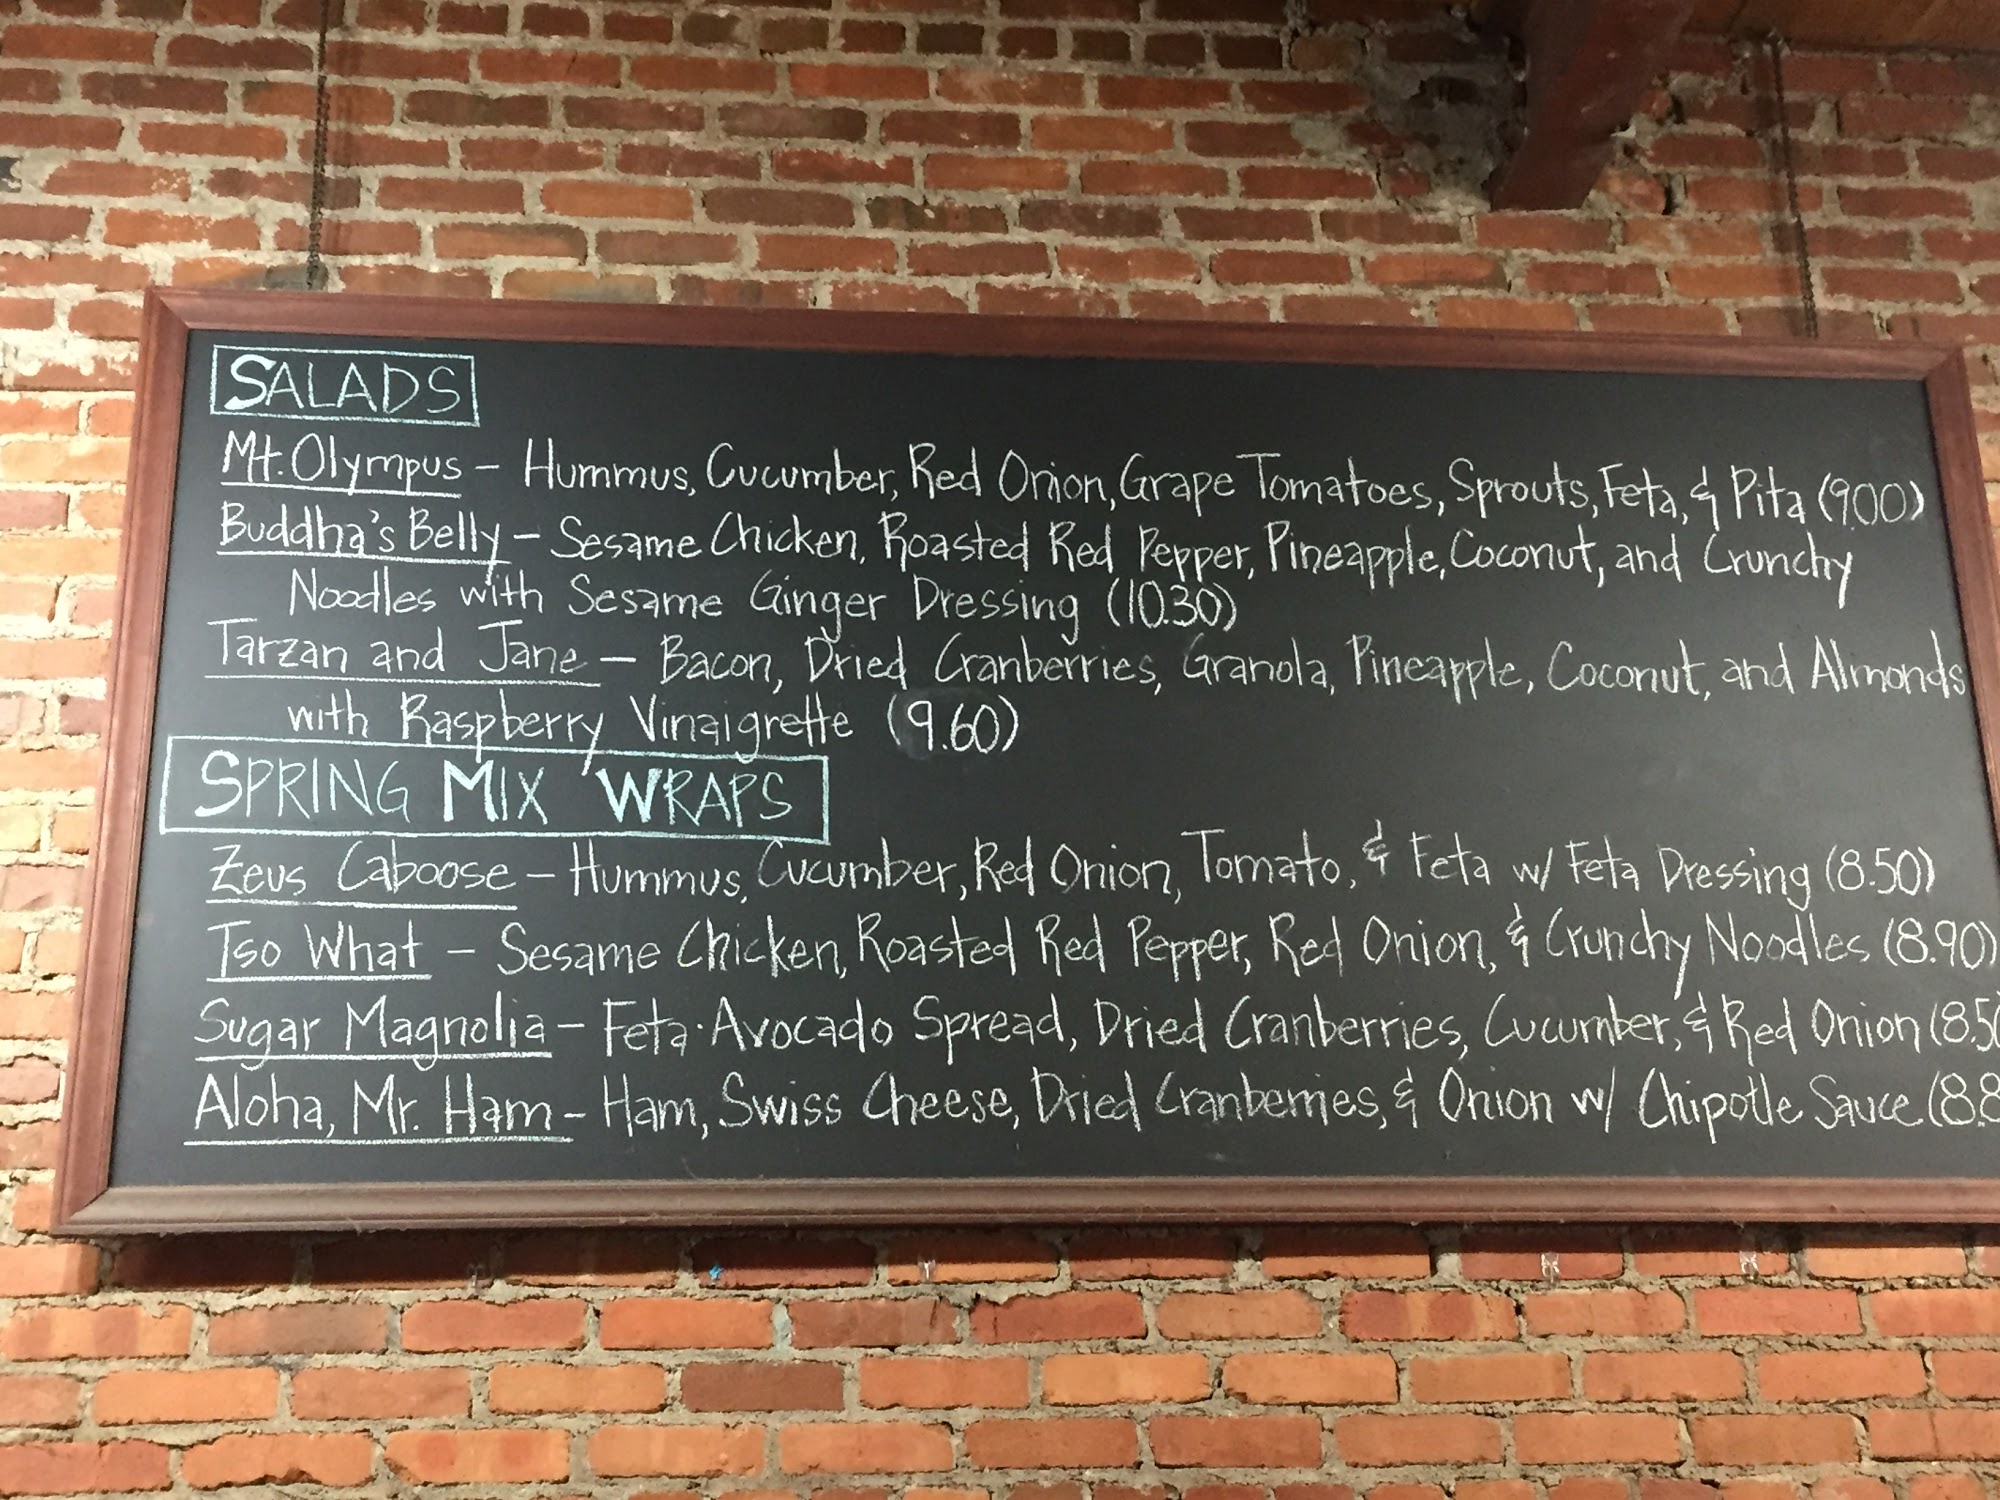 SALADS
Mt. Olympus - Hummus, Cucumber, Red Onion, Grape Tomatoes, Sprouts, Feta, & Pita (9.00)
Buddha's Belly - Sesame Chicken, Roasted Red Pepper, Pineapple, Coconut, and Crunchy
Noodles with Sesame Ginger Dressing (10.30)
Tarzan and Jane - Bacon, Dried Cranberries, Granola, Pineapple, Coconut, and Almonds
with Raspberry Vinaigrette (9.60)
SPRING MIX WRAPS
Zeus Caboose - Hummus, Cucumber, Red Onion, Tomato, & Feta w/ Feta Dressing (8.50)
Tso What - Sesame Chicken, Roasted Red Pepper, Red Onion, & Crunchy Noodles (8.90)
Sugar Magnolia - Feta-Avocado Spread, Dried Cranberries, Cucumber, & Red Onion (8.50
Aloha, Mr. Ham - Ham, Swiss Cheese, Dried Cranberries, & Onion w/ Chipotle Sauce (8.8